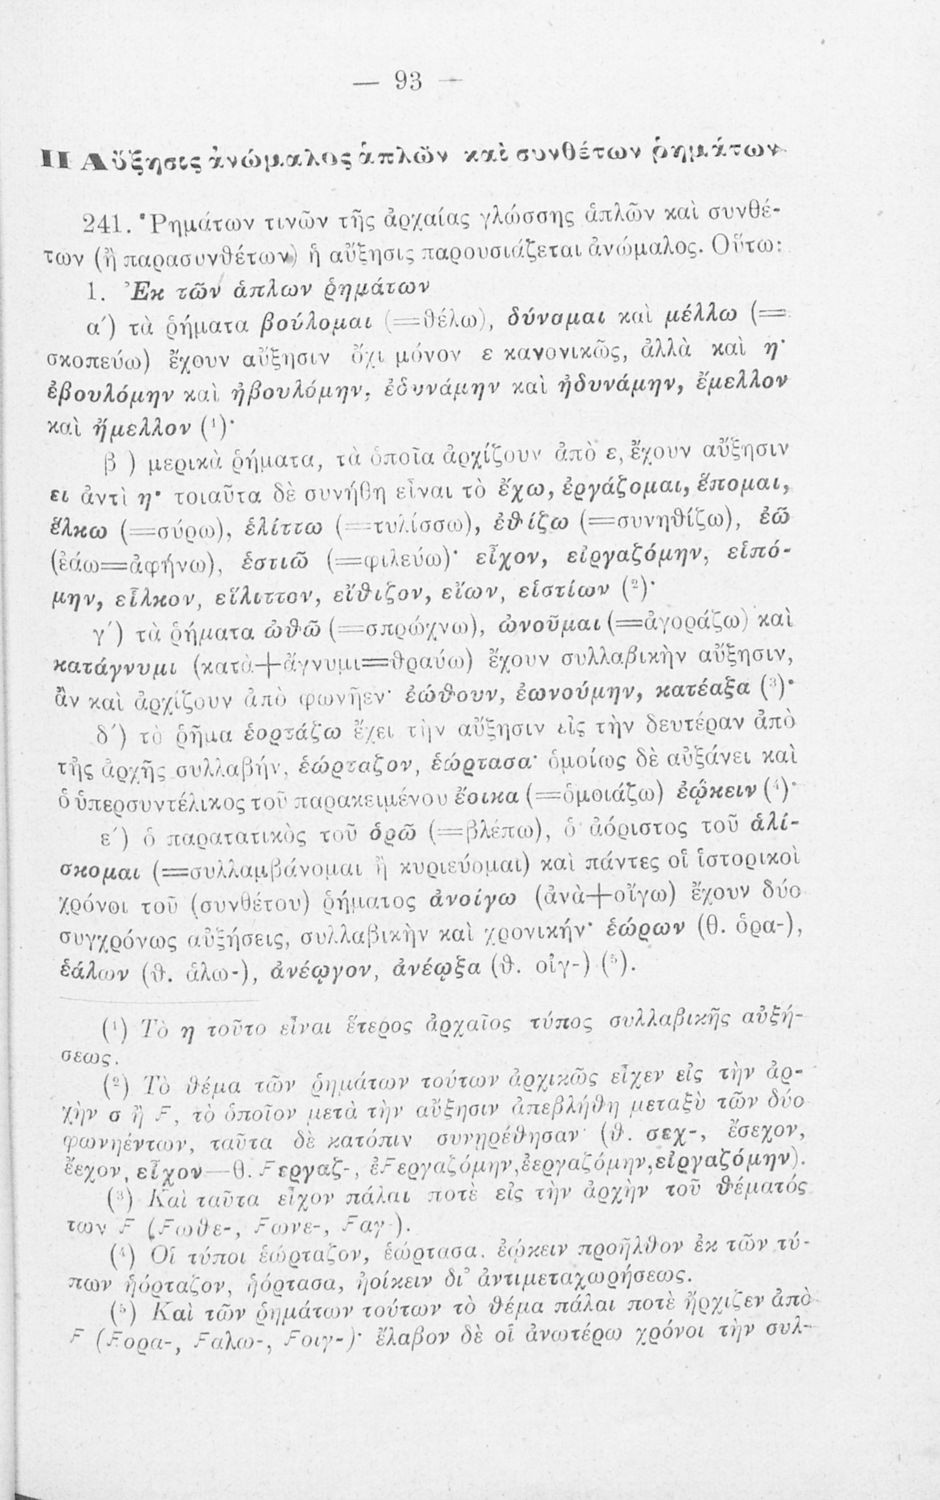 — 93 —
II Αὔξησις ἀνώμαλος ἁπλῶν καὶ συνθέτων ῥημάτων
241. Ῥημάτων τινῶν τῆς ἀρχαίας γλώσσης ἁπλῶν καὶ συνθέ-
των (ἢ παρασυνθέτων) ἡ αὔξησις παρουσιάζεται ἀνώμαλος. Οὕτω:
1. Ἐκ τῶν ἁπλων ῥημάτων
α΄) τὰ ῥήματα βούλομαι (=θέλω), δύναμαι καὶ μέλλω (=
σκοπεύω) ἔχουν αὔξησιν ὄχι μόνον ε κανονικῶς, ἀλλὰ καὶ η·
ἐβουλόμην καὶ ἠβουλόμην, ἐδυνάμην καὶ ἠδυνάμην, ἔμελλον
καὶ ἤμελλον (¹)·
β ) μερικὰ ῥήματα, τὰ ὁποῖα ἀρχίζουν ἀπὸ ε, ἔχουν αὔξησιν
ει ἀντὶ η· τοιαῦτα δὲ συνήθη εἶναι τὸ ἔχω, ἐργάζομαι, ἕπομαι,
ἕλκω (=σύρω), ἑλίττω (=τυλίσσω), ἐθίζω (=συνηθίζω), ἐῶ
(ἐάω=ἀφήνω), ἑστιῶ (=φιλεύω)· εἶχον, εἰργαζόμην, εἱπό-
μην, εἷλκον, εἵλιττον, εἴθιζον, εἴων, εἱστίων (²)·
γ΄) τὰ ῥήματα ὠθῶ (=σπρώχνω), ὠνοῦμαι (=ἀγοράζω) καὶ
κατάγνυμι (κατὰ+ἄγνυμι=θραύω) ἔχουν συλλαβικὴν αὔξησιν,
ἂν καὶ ἀρχίζουν ἀπὸ φωνῆεν· ἐώθουν, ἐωνούμην, κατέαξα (³)·
δ΄) τὸ ῥῆμα ἑορτάζω ἔχει τὴν αὔξησιν εἰς τὴν δευτέραν ἀπὸ
τῆς ἀρχῆς συλλαβήν, ἑώρταζον, ἑώρτασα· ὁμοίως δὲ αὐξάνει καὶ
ὁ ὑπερσυντέλικος τοῦ παρακειμένου ἔοικα (=ὁμοιάζω) ἐῴκειν (⁴)·
ε΄) ὁ παρατατικὸς τοῦ ὁρῶ (=βλέπω), ὁ ἀόριστος τοῦ ἁλί-
σκομαι (=συλλαμβάνομαι ἢ κυριεύομαι) καὶ πάντες οἱ ἱστορικοὶ
χρόνοι τοῦ (συνθέτου) ῥήματος ἀνοίγω (ἀνὰ+οἴγω) ἔχουν δύο
συγχρόνως αὐξήσεις, συλλαβικὴν καὶ χρονικήν· ἑώρων (θ. ὁρα-),
ἑάλων (θ. ἁλω-), ἀνέῳγον, ἀνέῳξα (θ. οἰγ-) (⁵).
(¹) Τὸ η τοῦτο εἶναι ἕτερος ἀρχαῖος τύπος συλλαβικῆς αὐξή-
σεως.
(²) Τὸ θέμα τῶν ῥημάτων τούτων ἀρχικῶς εἶχεν εἰς τὴν ἀρ-
χὴν σ ἢ F, τὸ ὁποῖον μετὰ τὴν αὔξησιν ἀπεβλήθη μεταξὺ τῶν δύο
φωνηέντων, ταῦτα δὲ κατόπιν συνῃρέθησαν· (θ. σεχ-, ἔσεχον,
ἔεχον, εἶχον—θ. Fεργαζ-, ἐFεργαζόμην, ἐεργαζόμην, εἰργαζόμην).
(³) Καὶ ταῦτα εἶχον πάλαι ποτὲ εἰς τὴν ἀρχὴν τοῦ θέματός
των F (Fωθε-, Fωνε-, Fαγ-).
(⁴) Οἱ τύποι ἑώρταζον, ἑώρτασα. ἐῴκειν προῆλθον ἐκ τῶν τύ-
πων ἡόρταζον, ἡόρτασα, ἠοίκειν δι᾽ ἀντιμεταχωρήσεως.
(⁵) Καὶ τῶν ῥημάτων τούτων τὸ θέμα πάλαι ποτὲ ἤρχιζεν ἀπὸ
F (Fορα-, Fαλω-, Fοιγ-)· ἔλαβον δὲ οἱ ἀνωτέρω χρόνοι τὴν συλ-